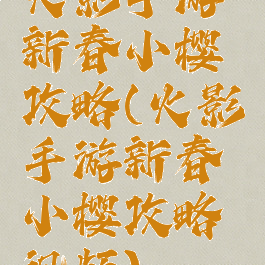 火影手游
新春小樱
攻略(火影
手游新春
小樱攻略
视频)